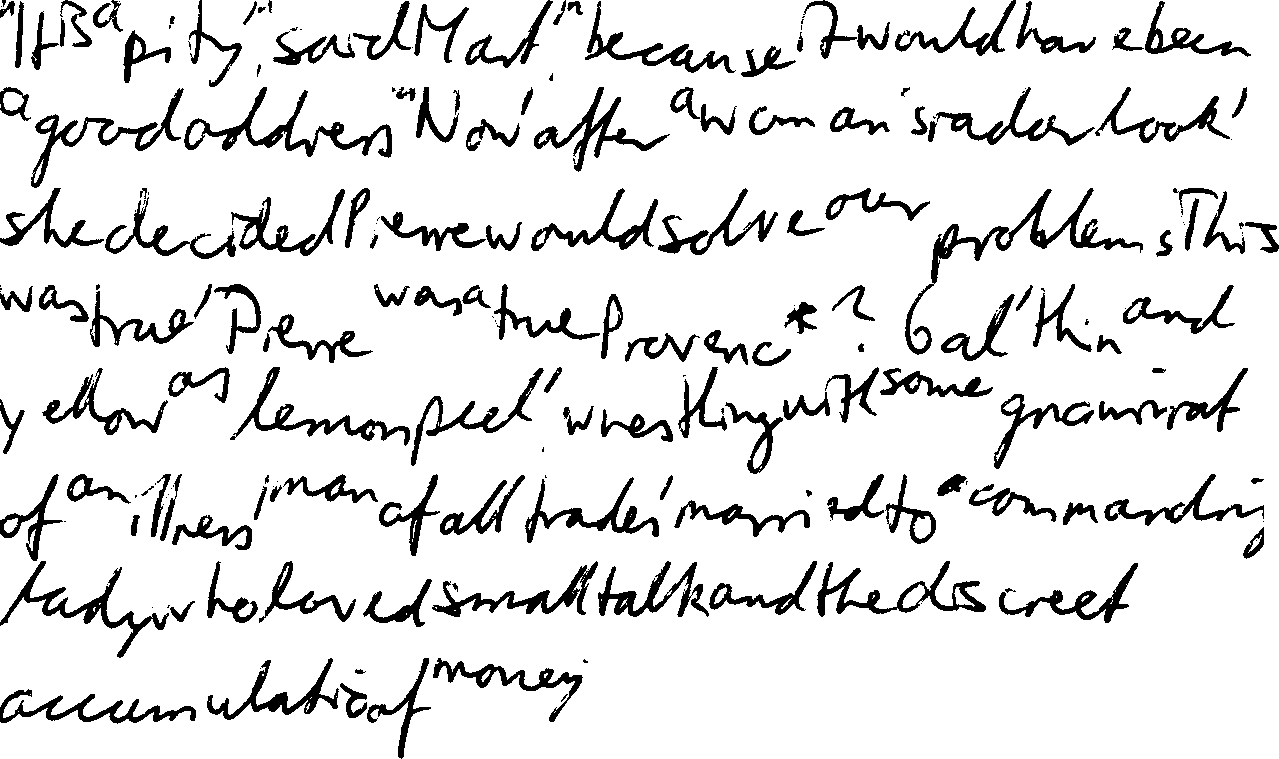 "It is a pity", said Mart, "because it would have been
a good address" Now' after a woman's radar look'
she decided Pierre would solve our problems This
was true' Pierre was a true Provenc*?6al' thin and
yellow as lemon peel', wrestling with some
of an illness' man of all trades' married to a commanding
lady who loved small talk and the discreet
accumulation of money